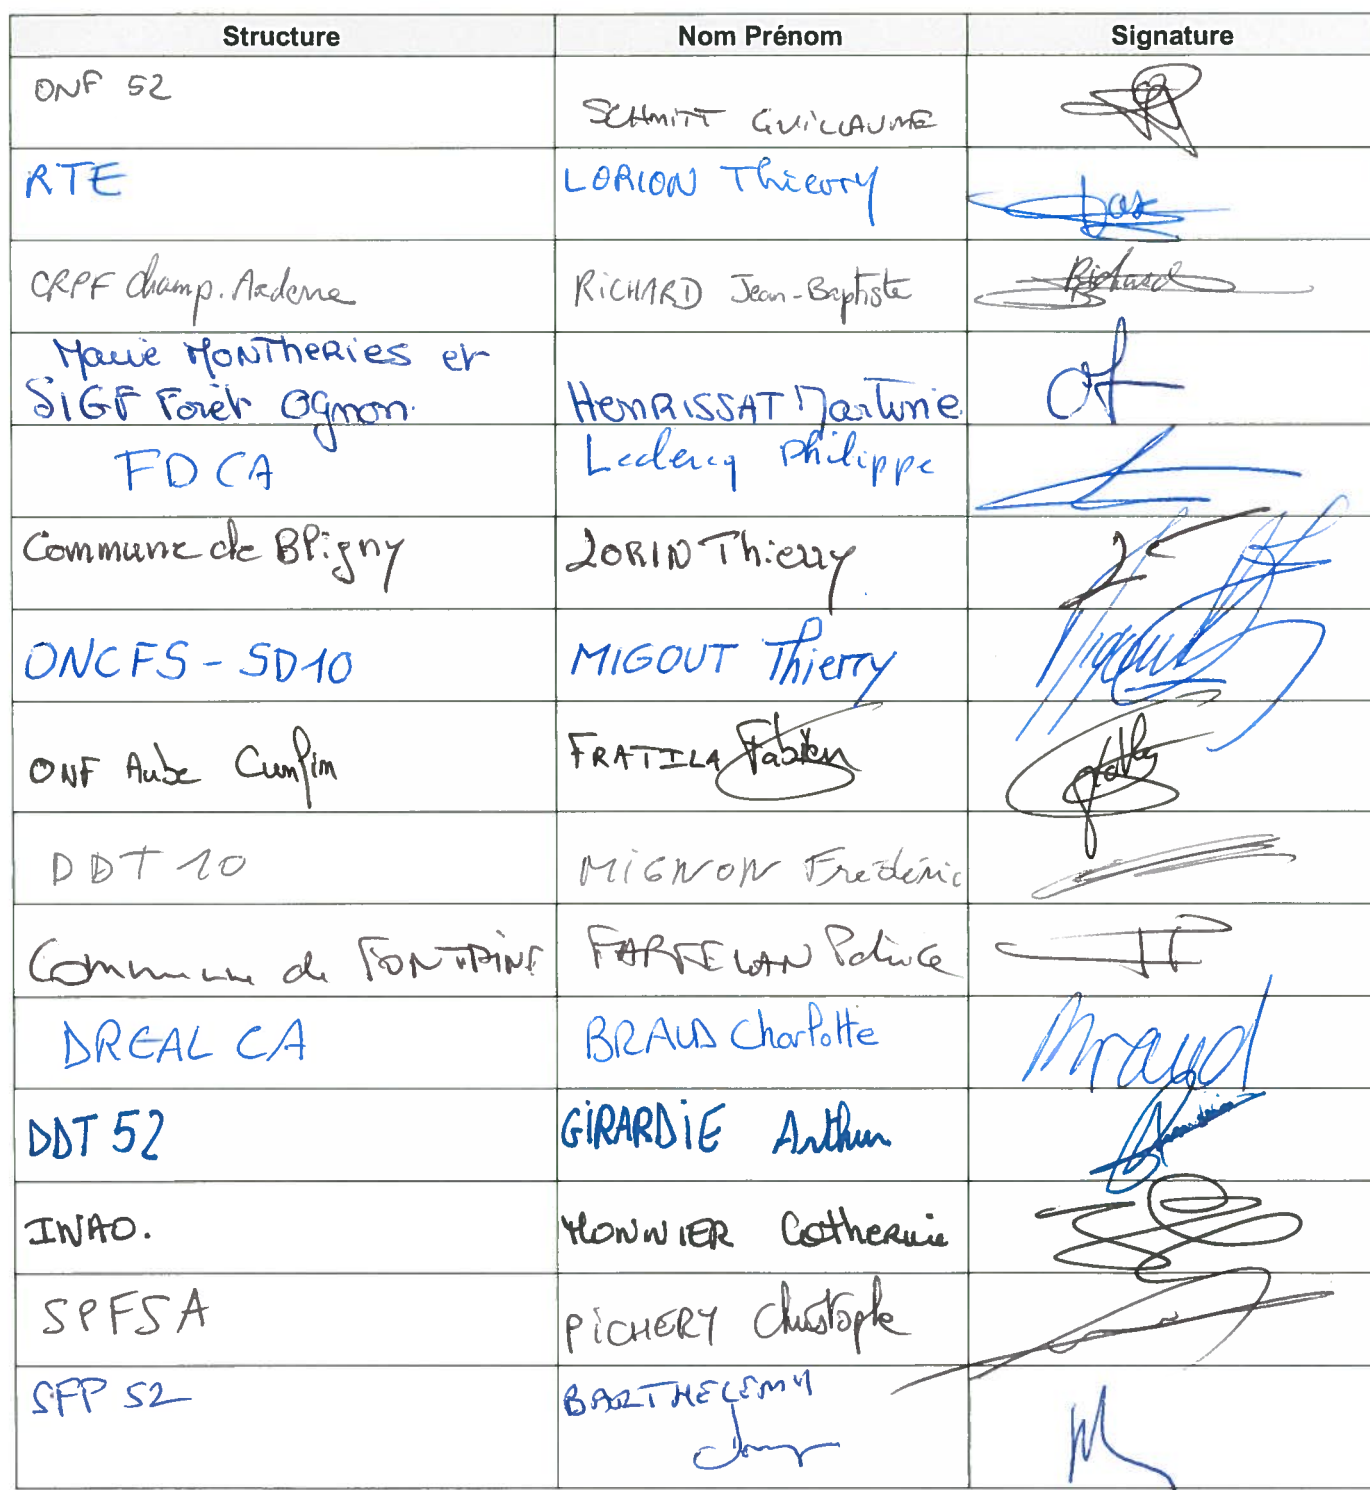 Structure Nom Prénom Signature
ONF 52 SCHMITT GUILLAUME
RTE LORION Thierry
CRPF Champ. Ardenne RICHARD Jean-Baptiste Richard
Mairie MONTHERIES et
SIGF Forêt Ognon. HENRISSAT Martine
FDCA Leclercq Philippe
Commune de BLigny LORIN Thierry
ONCFS - SD10 MIGOUT Thierry Migout
ONF Aube Cunfin FRATILA Fabien
DDT 10 MIGNON Frédéric
Commune de FONTAINE
DREAL CA BRAUD Charlotte Braud
DDT 52 GIRARDIE Arthur
INAO. MONNIER Catherine
SPFSA PICHERY Christophe
SFP 52 BARTHELEMY